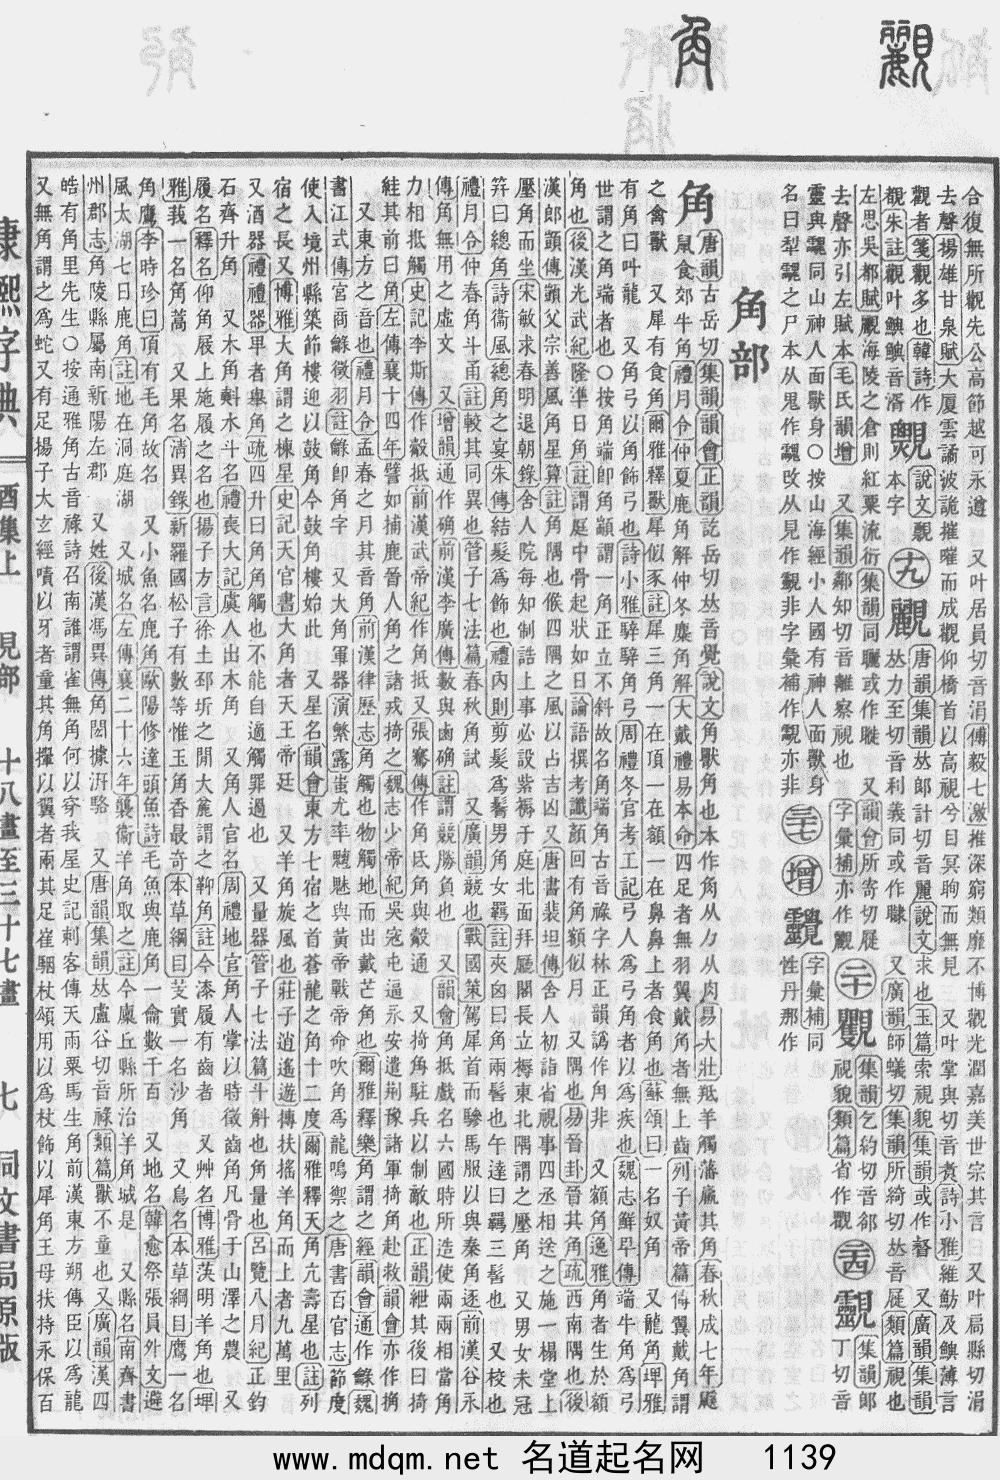 合復無所觀先公高節越可永遵　又叶居員切音涓傅毅七激推深窮類靡不博觀光潤嘉美世宗其言又叶局縣切涓
去聲揚雄甘泉賦大厦雲譎波詭摧嗺而成觀仰橋首以高視兮目冥眴而無見　又叶掌與切音煑詩小雅維魴及鱮薄言
觀者箋觀多也韓詩作
覩朱註觀叶鱮鱮音湑
說文
本字
十九
唐韻集韻𠀤郎計切音麗說文求也玉篇索視貌集韻或作　又廣韻集韻
𠀤力至切音利義同或作　又廣韻師蟻切集韻所綺切𠀤音屣類篇視也
左思吳都賦覼海陵之倉則紅粟流衍集韻同矖或作　又韻會所寄切屣
去聲亦引左賦本毛氏韻增　又集韻鄰知切音離察視也　字彙補亦作
二十
集韻乞約切音郤
視貌類篇省作觀
二十四
集韻郎
切音
靈與　同山神人面獸身○按山海經小人國有神人面獸身
名曰犁　之尸本从鬼作　改从見作　非字彙補作　亦非
三十七
增
字彙補同
性丹那作
角部
角
唐韻古岳切集韻韻會正韻訖岳切𠀤音覺說文角獸角也本作　从力从肉易大壯羝羊觸藩羸其角春秋成七年鼷
鼠食郊牛角禮月令仲夏鹿角解仲冬麋角解大戴禮易本命四足者無羽翼戴角者無上齒列子黃帝篇傅翼戴角謂
之禽獸　又犀有食角爾雅釋獸犀似豕註犀三角一在頂一在額一在鼻鼻上者食角也蘇頌曰一名奴角　又龍角埤雅
有角曰叫龍　又角弓以角飾弓也詩小雅騂騂角弓周禮冬官考工記弓人爲弓角者以爲疾也魏志鮮卑傳端牛角爲弓
世謂之角端者也○按角端卽角顓謂一角正立不斜故名角端角古音祿字林正韻譌作角非　又額角逸雅角者生於額
角也後漢光武紀隆準日角註謂庭中骨起狀如日論語撰考讖顏回有角額似月　又隅也易晉卦晉其角疏西南隅也後
漢郎顗傳顗父宗善風角星算註角隅也候四隅之風以占吉凶　又唐書裴坦傳舍人初詣省視事四丞相送之施一榻堂上
壓角而坐宋敏求春明退朝錄舍人院每知制誥上事必設紫褥于庭北面拜廳閣長立褥東北隅謂之壓角　又男女未冠
笄曰總角詩衞風總角之宴朱傳結髮爲飾也禮內則剪髮爲鬌男角女羈註夾囟曰角兩髻也午達曰羈三髻也　又校也
禮月令仲春角斗甬註較其同異也管子七法篇春秋角試　又廣韻競也戰國策駕犀首而驂馬服以與秦角逐前漢谷永
傳角無用之虛文　又增韻通作确前漢李廣傳數與虜确註謂競勝負也　又韻會角抵戲名六國時所造使兩兩相當角
力相抵觸史記李斯傳作觳抵前漢武帝紀作角抵　又張騫傳作角氐角與觳通　又掎角駐兵以制敵也正韻絓其後曰掎
絓其前曰角左傳襄十四年譬如捕鹿晉人角之諸戎掎之魏志少帝紀吳寇屯逼永安遣荆豫諸軍掎角赴救韻會亦作捔
又東方之音也禮月令孟春之月其音角前漢律歷志角觸也物觸地而出戴芒角也爾雅釋樂角謂之經韻會通作龣魏
書江式傳宮商龣徵羽註龣卽角字　又大角軍器演繁露蚩尤率魑魅與黃帝戰帝命吹角爲龍鳴禦之唐書百官志節度
使入境州縣築節樓迎以鼓角今鼓角樓始此　又星名韻會東方七宿之首蒼龍之角十二度爾雅釋天角亢壽星也註列
宿之長　又博雅大角謂之棟星史記天官書大角者天王帝廷　又羊角旋風也莊子逍遙遊傳扶搖羊角而上者九萬里
又酒器禮禮器卑者舉角疏四升曰角角觸也不能自適觸罪過也　又量器管子七法篇斗斛也角量也呂覽八月紀正鈞
石齊升角　又木角斠木斗名禮喪大記虞人出木角　又角人官名周禮地官角人掌以時徵齒角凡骨于山澤之農　又
履名釋名仰角屐上施履之名也揚子方言徐土邳圻之閒大麄謂之鞮角註今漆履有齒者　又艸名博雅䒺明羊角也埤
雅我一名角蒿　又果名清異錄新羅國松子有數等惟玉角香最奇本草綱目芰實一名沙角　又鳥名本草綱目鷹一名
角鷹李時珍曰頂有毛角故名　又小魚名鹿角歐陽修達頭魚詩毛魚與鹿角一龠數千百　又地名韓愈祭張員外文避
風太湖七日鹿角註地在洞庭湖　又城名左傳襄二十六年襲衞羊角取之註今廩丘縣所治羊角城是　又縣名南齊書
州郡志角陵縣屬南新陽左郡　又姓後漢馮異傳角閎據汧駱　又唐韻集韻𠀤盧谷切音祿類篇獸不童也又廣韻漢四
皓有角里先生○按通雅角古音祿詩召南誰謂雀無角何以穿我屋史記刺客傳天雨粟馬生角前漢東方朔傳臣以爲龍
又無角謂之爲蛇又有足揚子大玄經嘖以牙者童其角擢以翼者兩其足崔駰杖頌用以爲杖飾以犀角王母扶持永保百
康熙字典　酉集上　見部　十八畫至三十七畫　七　同文書局原版
www.mdqm.net 名道起名网　1139